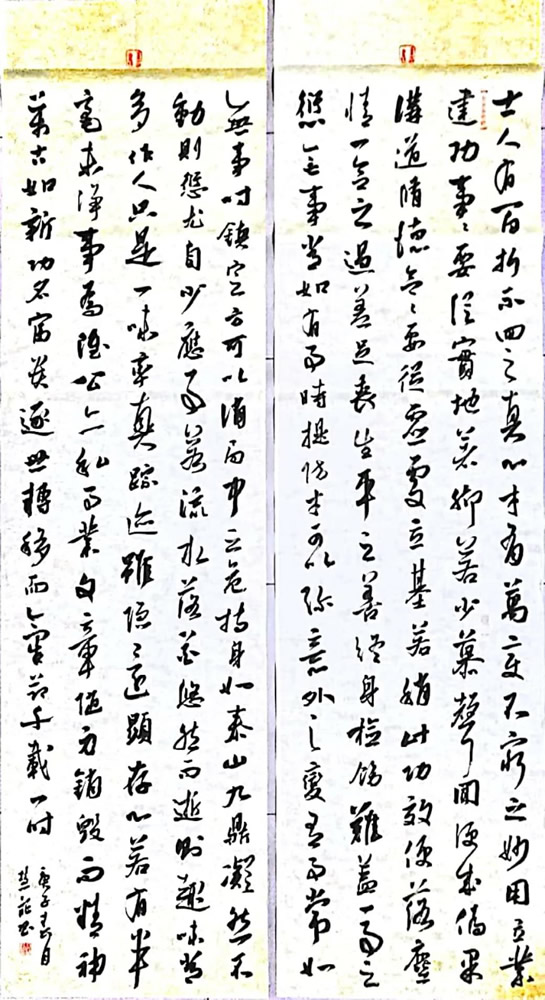 士人有百折不回之真心才有萬變不窮之妙用立業
建功事〻要從實地著腳若少慕聲聞便成偽果
講道脩德念〻要從虛處立基若稍計功效便落塵
情一念之過差足喪生平之善終身檢飭難蓋一事之
愆無事常如有事時提防才可以弥意外之變有事常如
無事時鎮定方可以消局中之危持身如泰山九鼎凝然不
動則愆尤自少應事若流水落花悠然而逝則趣味常
多作人只是一味率真蹤迹雖隱還顯存心若有半
毫未淨事為雖公亦私事業文章隨身銷毀而精神
萬古如新功名富貴逐世轉移而氣節千載一時
庚子